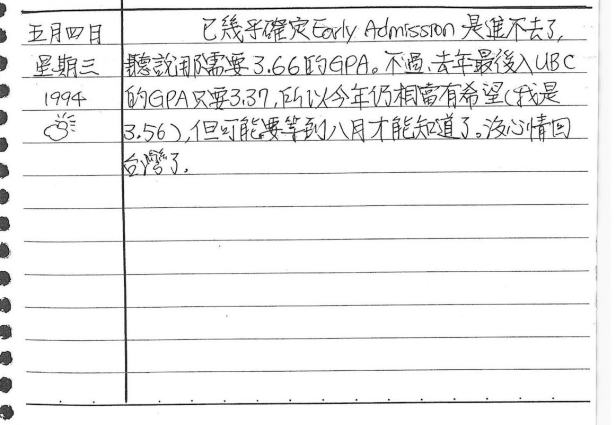 五月四日
星期三
1994
已幾乎確定Early Admission 是進不去了,
聽說那需要3.66的GPA。不過、去年最後入UBC
的GPA只要3.37,所以今年仍相當有希望(我是
3.56),但可能要等到八月才能知道了。沒心情回
台灣了.